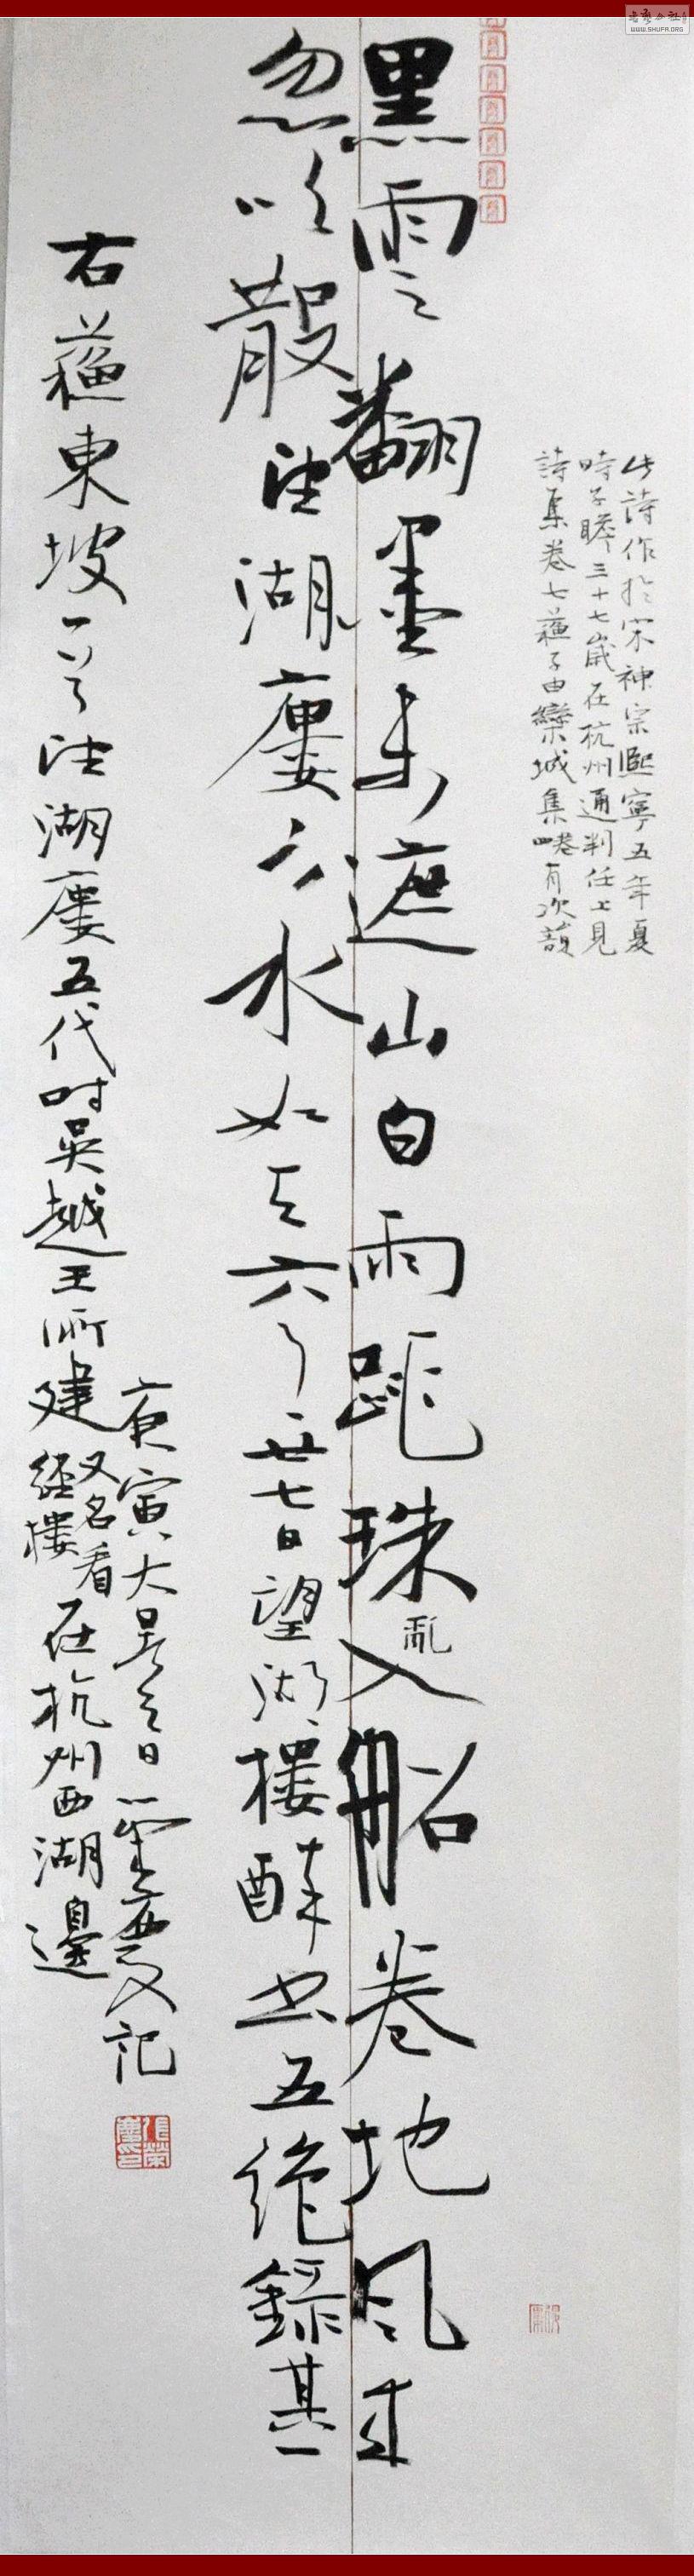 黑雲翻墨未遮山白雨跳珠亂入船卷地風來
忽吹散望湖廔下水如天六月廿七日望湖樓醉書五絕錄其一
此詩作於宋神宗熙寧五年夏
時子瞻三十七歲在杭州通判任上見
詩集卷七蘇子由欒城集四卷有次韻
右蘇東坡一首望湖廔五代時吳越王所建又名看經樓在杭州西湖邊
庚寅大暑之日
記
WWW.SHUFA.ORG